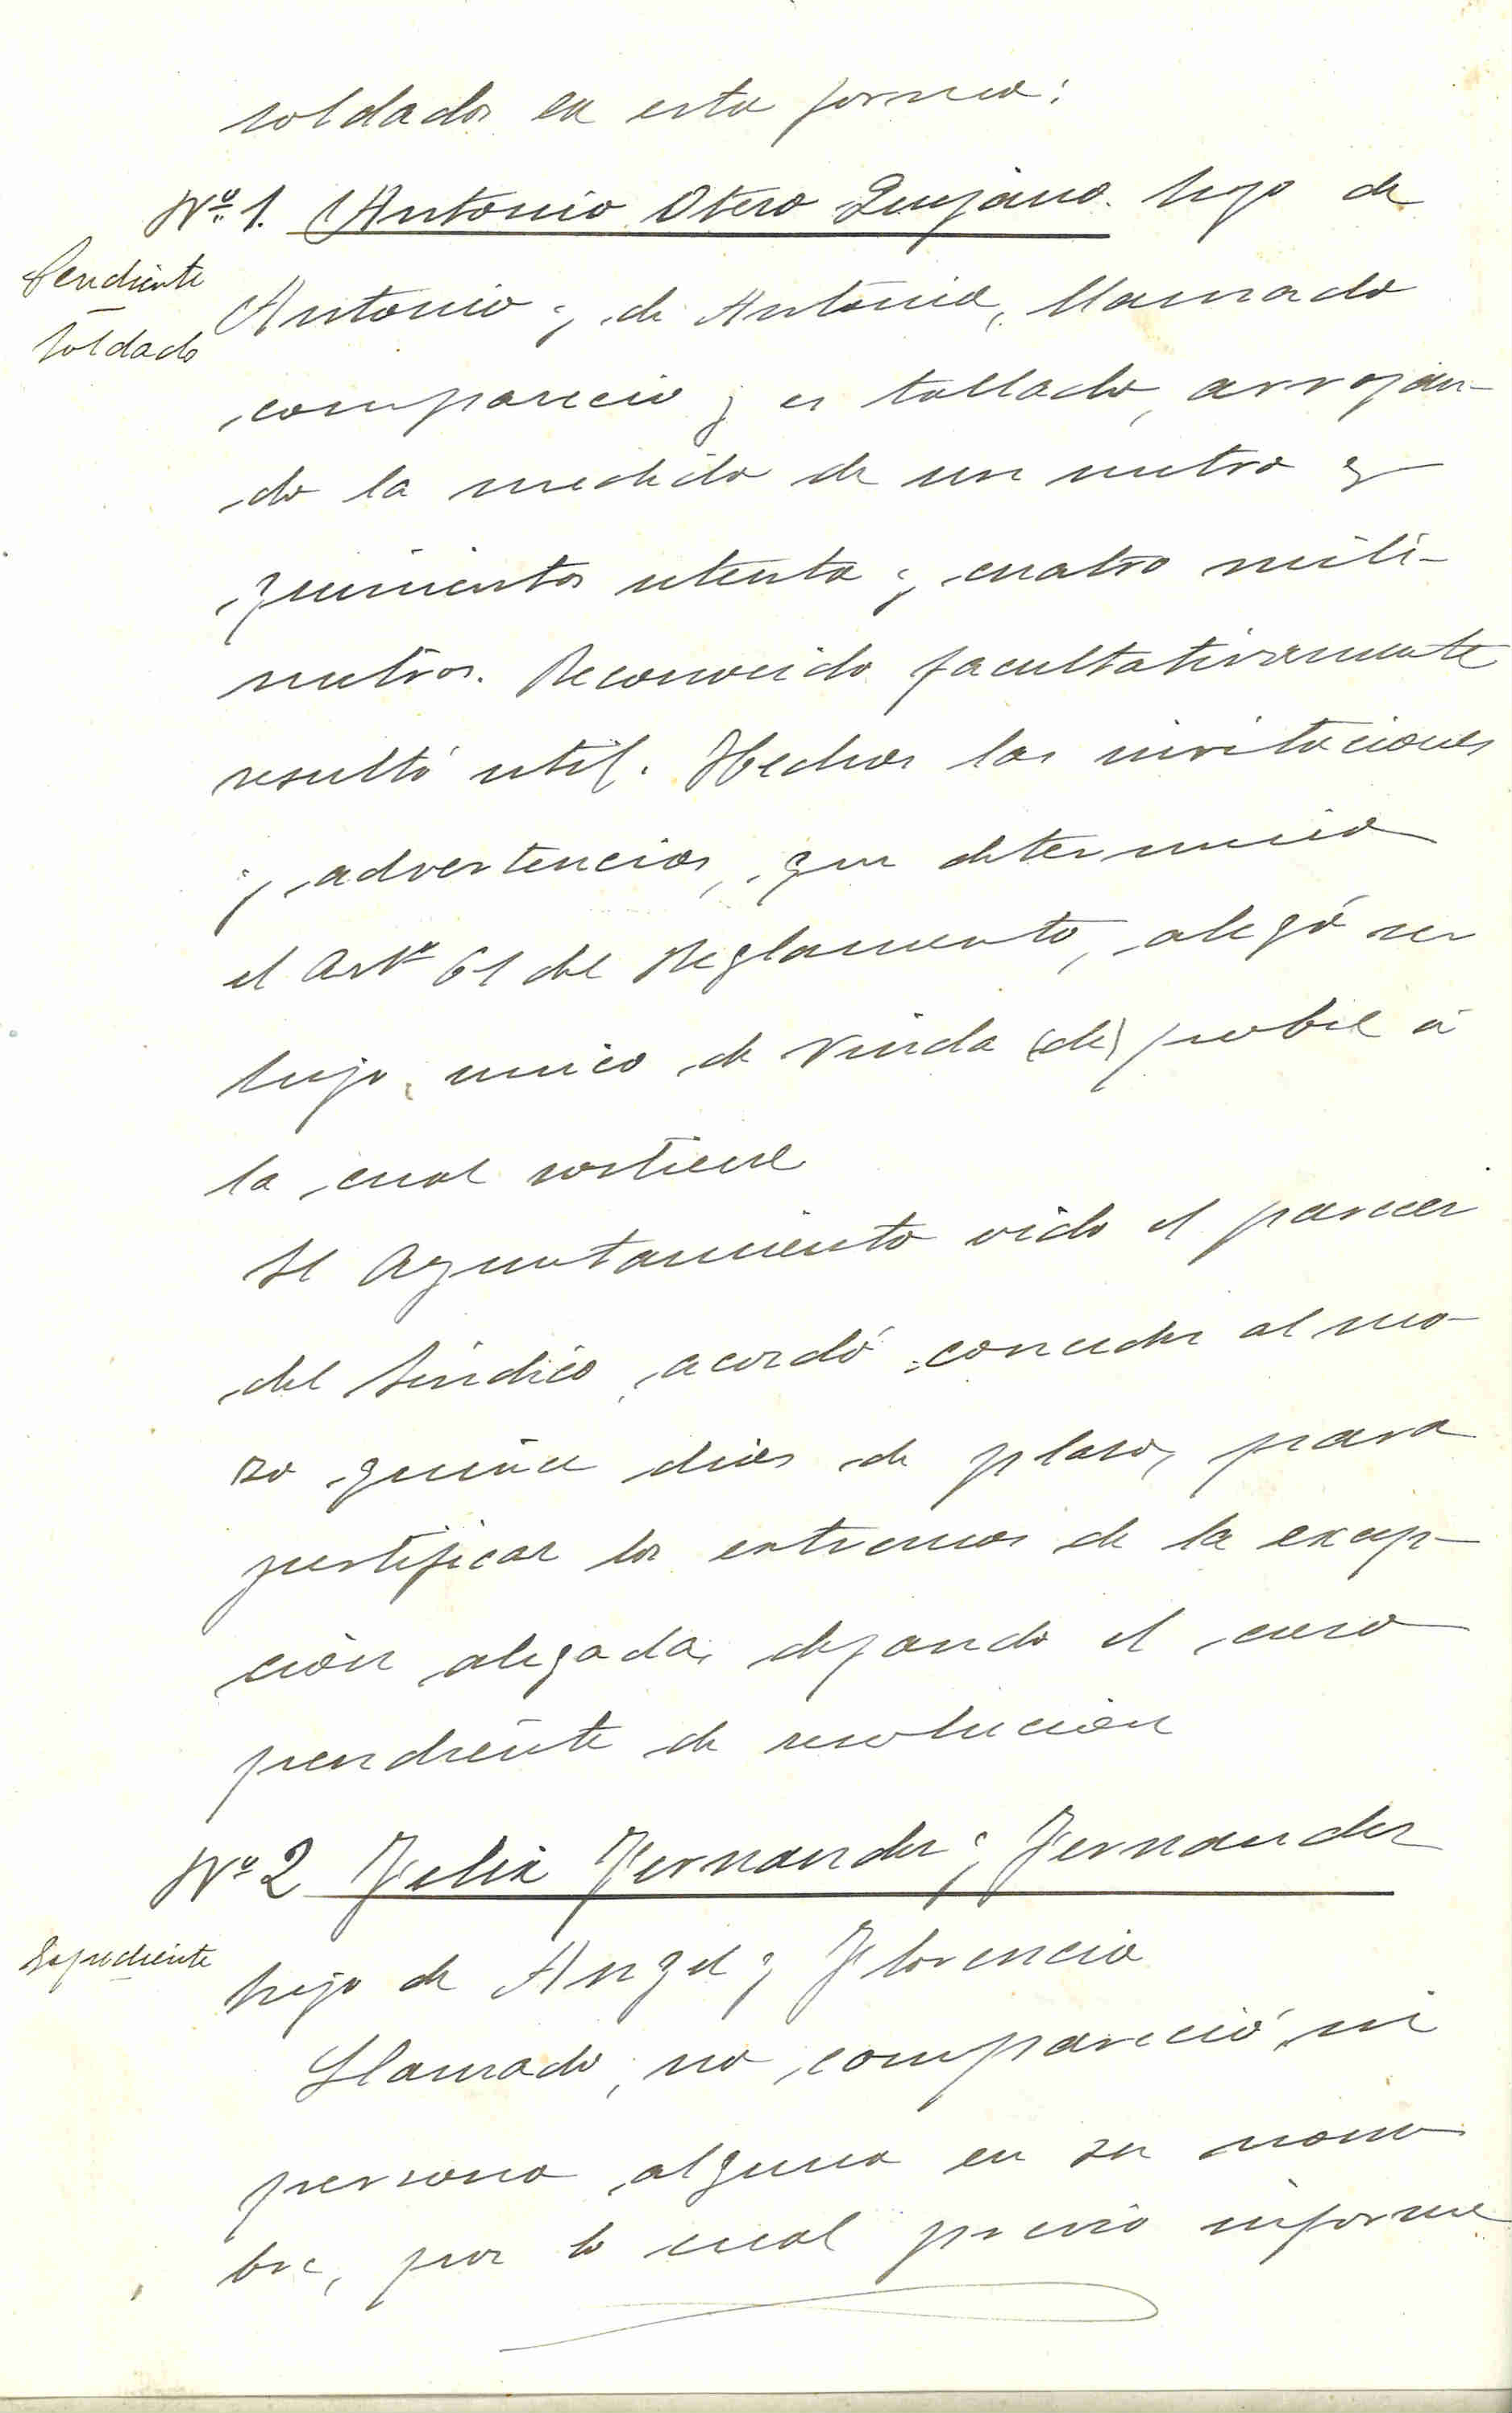 soldados en esta forma:
Nº 1. Antonio Otero Quijano. hijo de
Pendiente
Soldado
Antonio y de Antonia, llamado
comparecio y es tallado, arrojan-
do la medida de un metro y
quinientos setenta y cuatro milí-
metros. Reconocido facultativamente
resultó util. Hechas las invitaciones
y advertencias, que determina
el Artº 61 del Reglamento, alegó ser
hijo unico de viuda (de) pobre á
la cual sostiene
El Ayuntamiento oido el parecer
del Síndico acordó conceder al mo-
zo quince dias de plaso, para
justificar los extremos de la excep-
ción alegada, dejando el caso
pendiente de resolución
Nº 2 Felix Fernandez y Fernandez
Expediente
hijo de Angel y Florencia
Llamado, no compareció ni
persona alguna en su nom
bre, por lo cual previo informe